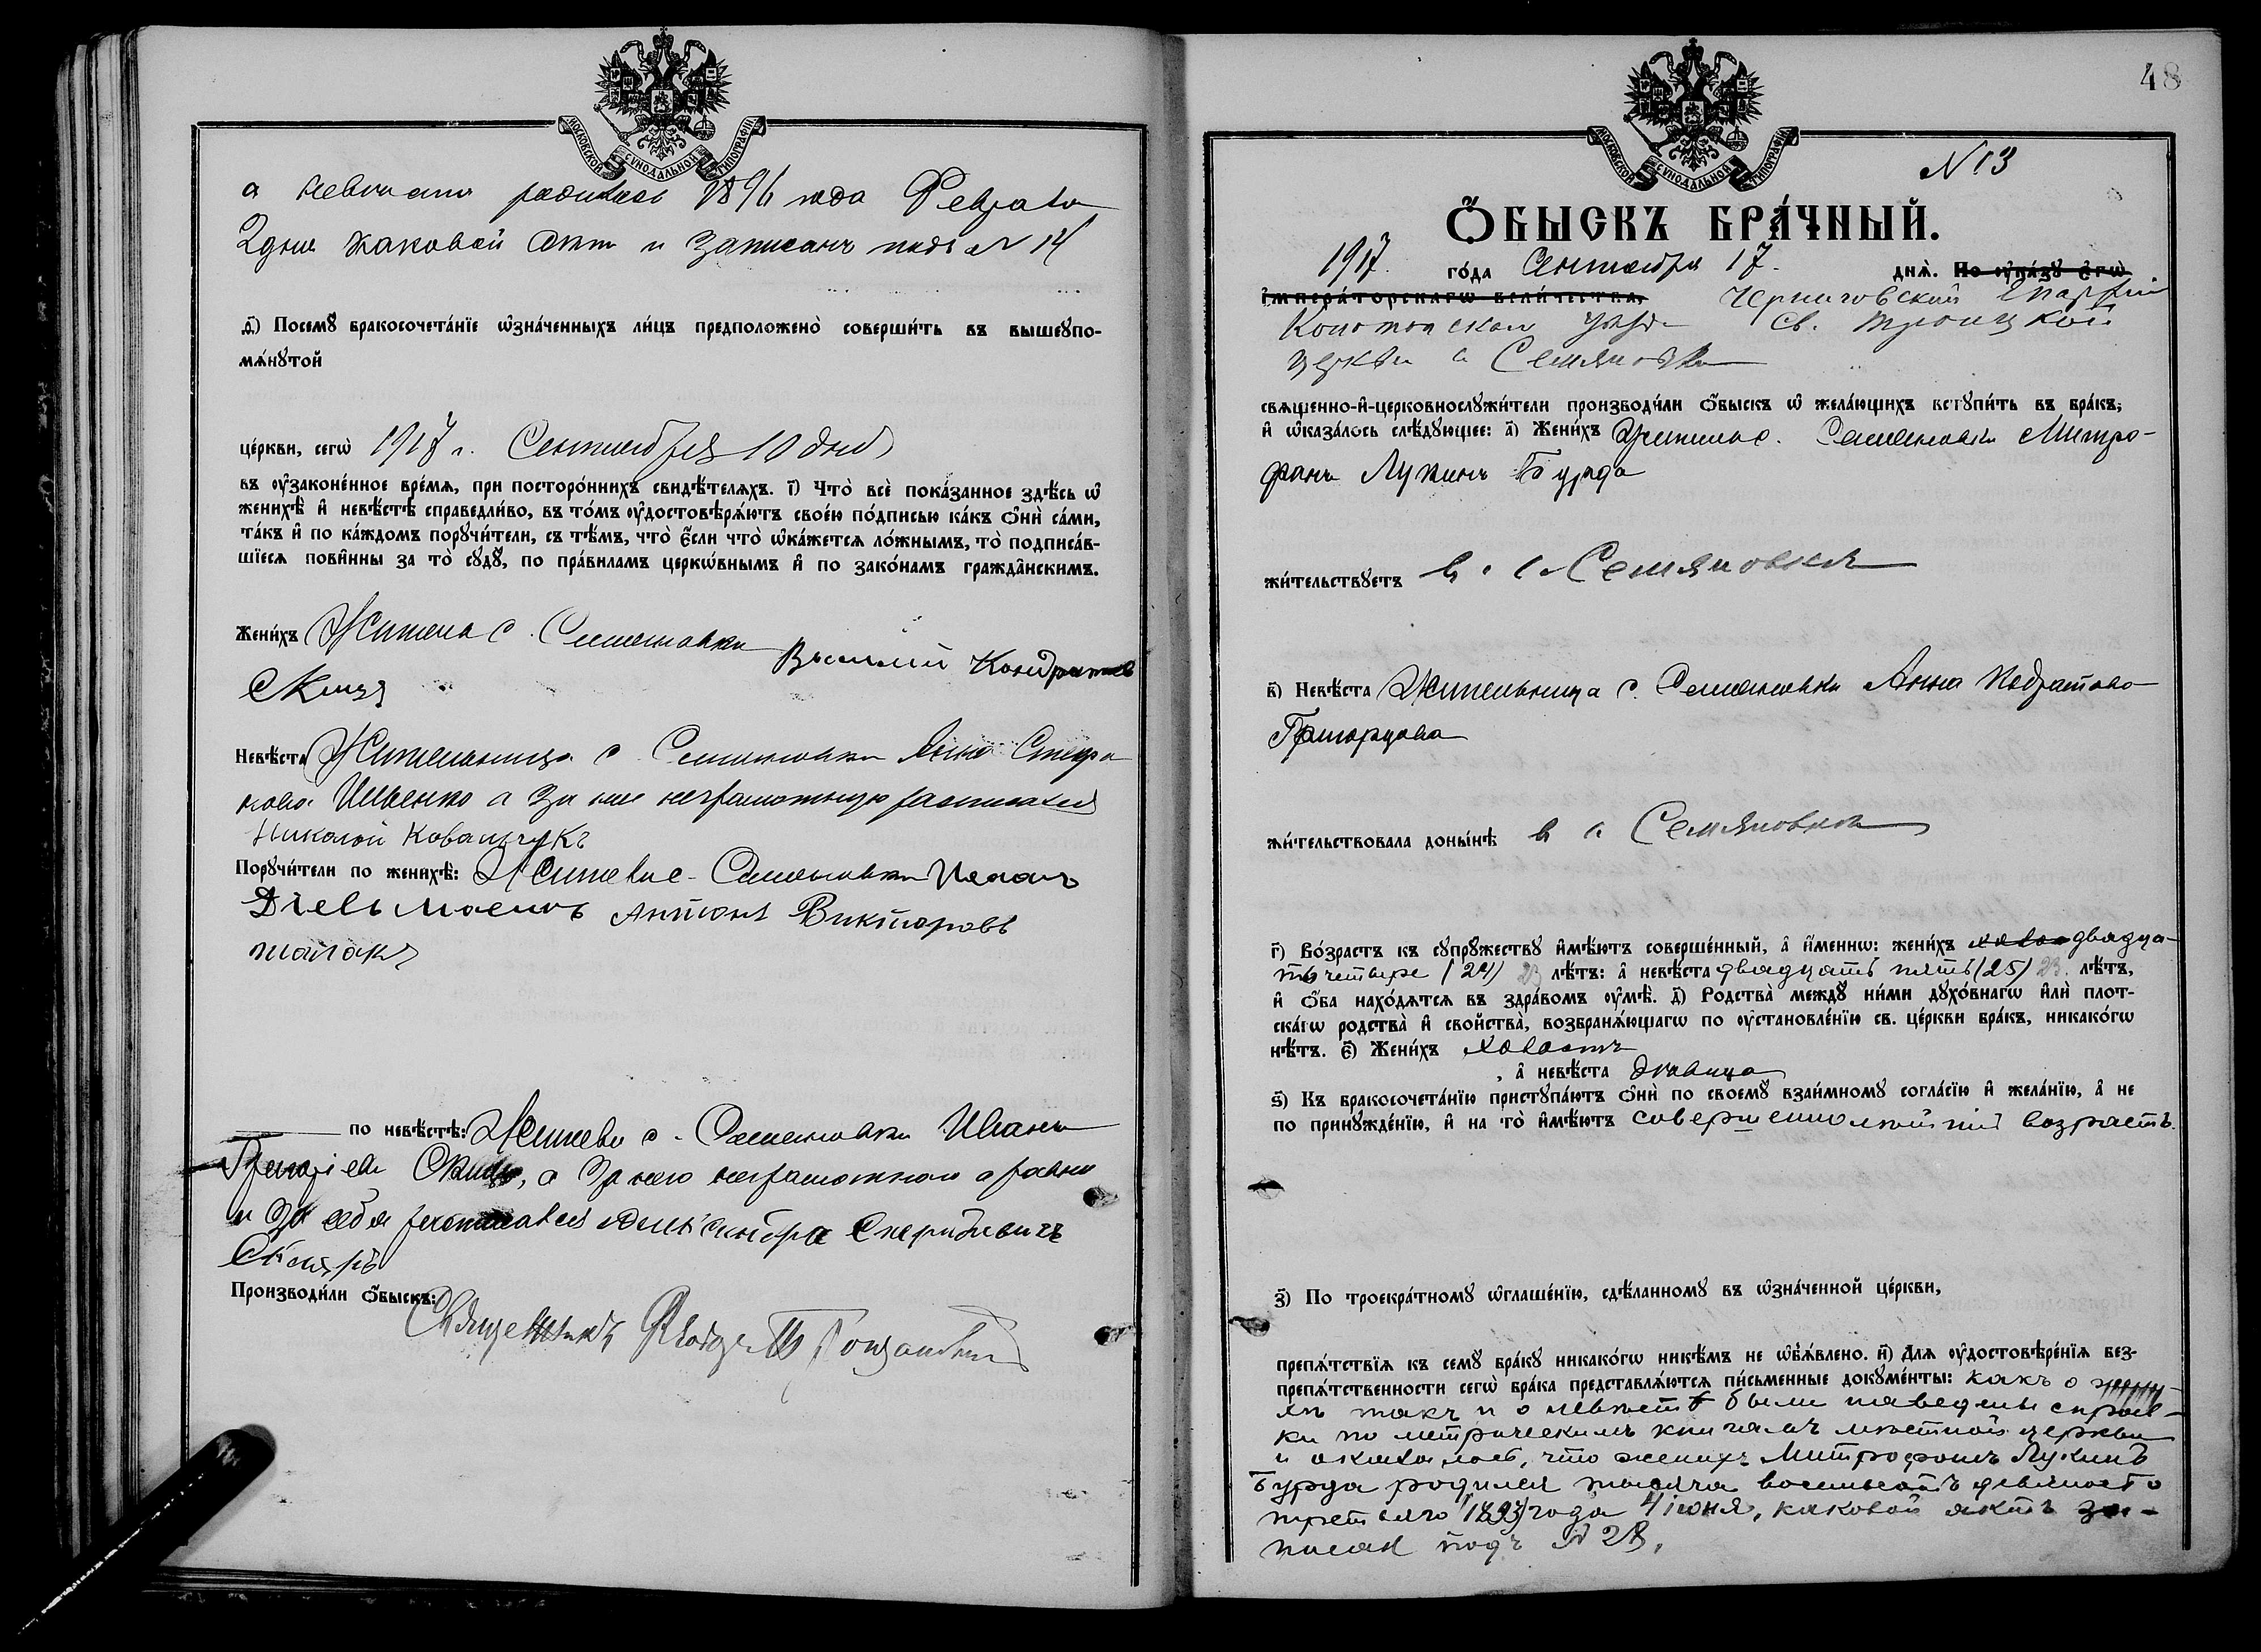 МОСКОВСКОЙ СѴНОДАЛЬНОЙ ТИПОГРАФІИ
а невеста родилась 1896 года Февраля
2 дня каковой Акт и записанъ подъ N 14
д҃) Посемꙋ бракосочета́нїе ѡ҆зна́ченныхъ ли́цъ предположено̀ соверши́ть въ вышеꙋпо-
мѧ́нꙋтой
це́ркви, сегѡ̀ 1917 г. Сентября 10 дня
въ ᲂу҆законе́нное вре́мѧ, при посторо́ннихъ свидѣ́телѧхъ. і҃) Что̀ всѐ пока́занное здѣ́сь ѡ҆
женихѣ̀ и҆ невѣ́стѣ справедли́во, въ то́мъ ᲂу҆достовѣрѧ́ютъ свое́ю по́дписью ка́къ ѻ҆нѝ са́ми,
та́къ и҆ по ка́ждомъ порꙋчи́тели, съ тѣ́мъ, что̀ є҆́сли что̀ ѡ҆ка́жетсѧ ло́жнымъ, то̀ подписа́в-
шїесѧ пови́нны за то̀ сꙋдꙋ̀, по пра́виламъ церкѡ́внымъ и҆ по зако́намъ гражда̑нскимъ.
Жени́хъ Житель с. Семяновки Василий Кондратов
Невѣ́ста Жительница с Семяновки Анна
Ивенко а за нее неграмотную расписался
Николой Ковальчукъ
Порꙋчи́тели по женихѣ̀: Жители с. Семяновки
Антонъ Викторовъ
по невѣ́стѣ: Жители с. Семяновки Иванъ
Григоріевъ а за него неграмотного а равно
и за себя расписался
Производи́ли ѻ҆́быскъ:
Священникъ
48
МОСКОВСКОЙ СѴНОДАЛЬНОЙ ТИПОГРАФІИ
N 13
Ѻ҆́БЫСКЪ БРА́ЧНЫЙ.
1917. го́да Сентября 17. днѧ̀. По ᲂу҆ка́зꙋ є҆гѡ̀
і҆мпера́торскагѡ вели́чества, Черниговской Епархіи
Конотопского уезда Св. Троицкой
церкви с Семяновки
свѧщенно-и҆-церковнослꙋжи́тели производи́ли ѻ҆́быскъ ѡ҆ жела́ющихъ встꙋпи́ть въ бра́къ;
и҆ ѡ҆каза́лось слѣ́дꙋющее: а҃) Жени́хъ Житель с. Семяновки Митро-
фанъ Лукинъ Бурда
жи́тельствꙋетъ в. с Семяновке
в҃) Невѣ́ста Жительница с. Семяновки Анна
жи́тельствовала доны́нѣ в с. Семяновке
г҃) Во́зрастъ къ сꙋпрꙋ́жествꙋ и҆мѣ́ютъ соверше́нный, а҆ и҆́меннѡ: жени́хъ двадца-
ть четыре (24) 23 лѣ́тъ: а҆ невѣ́ста двадцать пять (25) 23. лѣ́тъ,
и҆ ѻ҆́ба нахо́дѧтсѧ въ здра́вомъ ᲂу҆мѣ̀. д҃) Родства̀ междꙋ̀ ни́ми дꙋхо́внагѡ и҆лѝ плот-
ска́гѡ родства̀ и҆ сво́йства̀, возбранѧ́ющагѡ по ᲂу҆становле́нїю св. це́ркви бра́къ, никако́гѡ
нѣ́тъ. є҃) Жени́хъ холостъ
, а҆ невѣ́ста девица
ѕ҃) Къ бракосочета́нїю пристꙋпа́ютъ ѻ҆нѝ по своемꙋ̀ взаи́мномꙋ согла́сїю и҆ жела́нїю, а҆ не
по принꙋжде́нїю, и҆ на то̀ и҆мѣ́ютъ совершеннолѣтній возрастъ.
з҃) По троекра́тномꙋ ѡ҆глаше́нїю, сдѣ́ланномꙋ въ ѡ҆зна́ченной це́ркви,
препѧ́тствїѧ къ семꙋ̀ бра́кꙋ никако́гѡ никѣ́мъ не ѡ҆б̾ѧ́влено. и҃) Длѧ ᲂу҆достовѣре́нїѧ без-
препѧ́тственности сегѡ̀ бра́ка представлѧ́ютсѧ пи́сьменные докꙋме́нты: какъ о жени-
хѣ такъ и о невѣстѣ были наведены справ-
ки по метрическимъ книгамъ мѣстной церкви
и оказалось, что женихъ Митрофанъ Лукинъ
Бурда родился тысяча восемьсотъ девяносто
третьяго (1893) года 4 іюня, каковой актъ за-
писан подъ N 28.